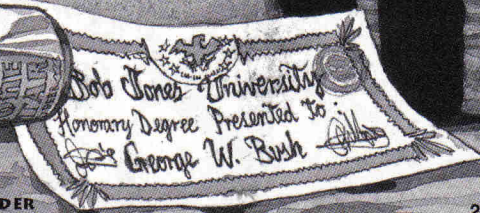 Bob Jones University
Honorary Degree Presented to:
George W. Bush
DER
2